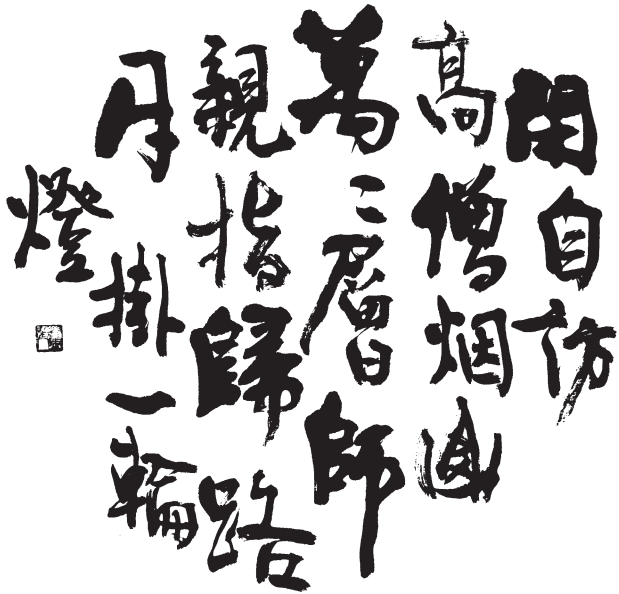 閑自訪
高僧烟山
萬二層師
親指歸路
月掛一輪
燈